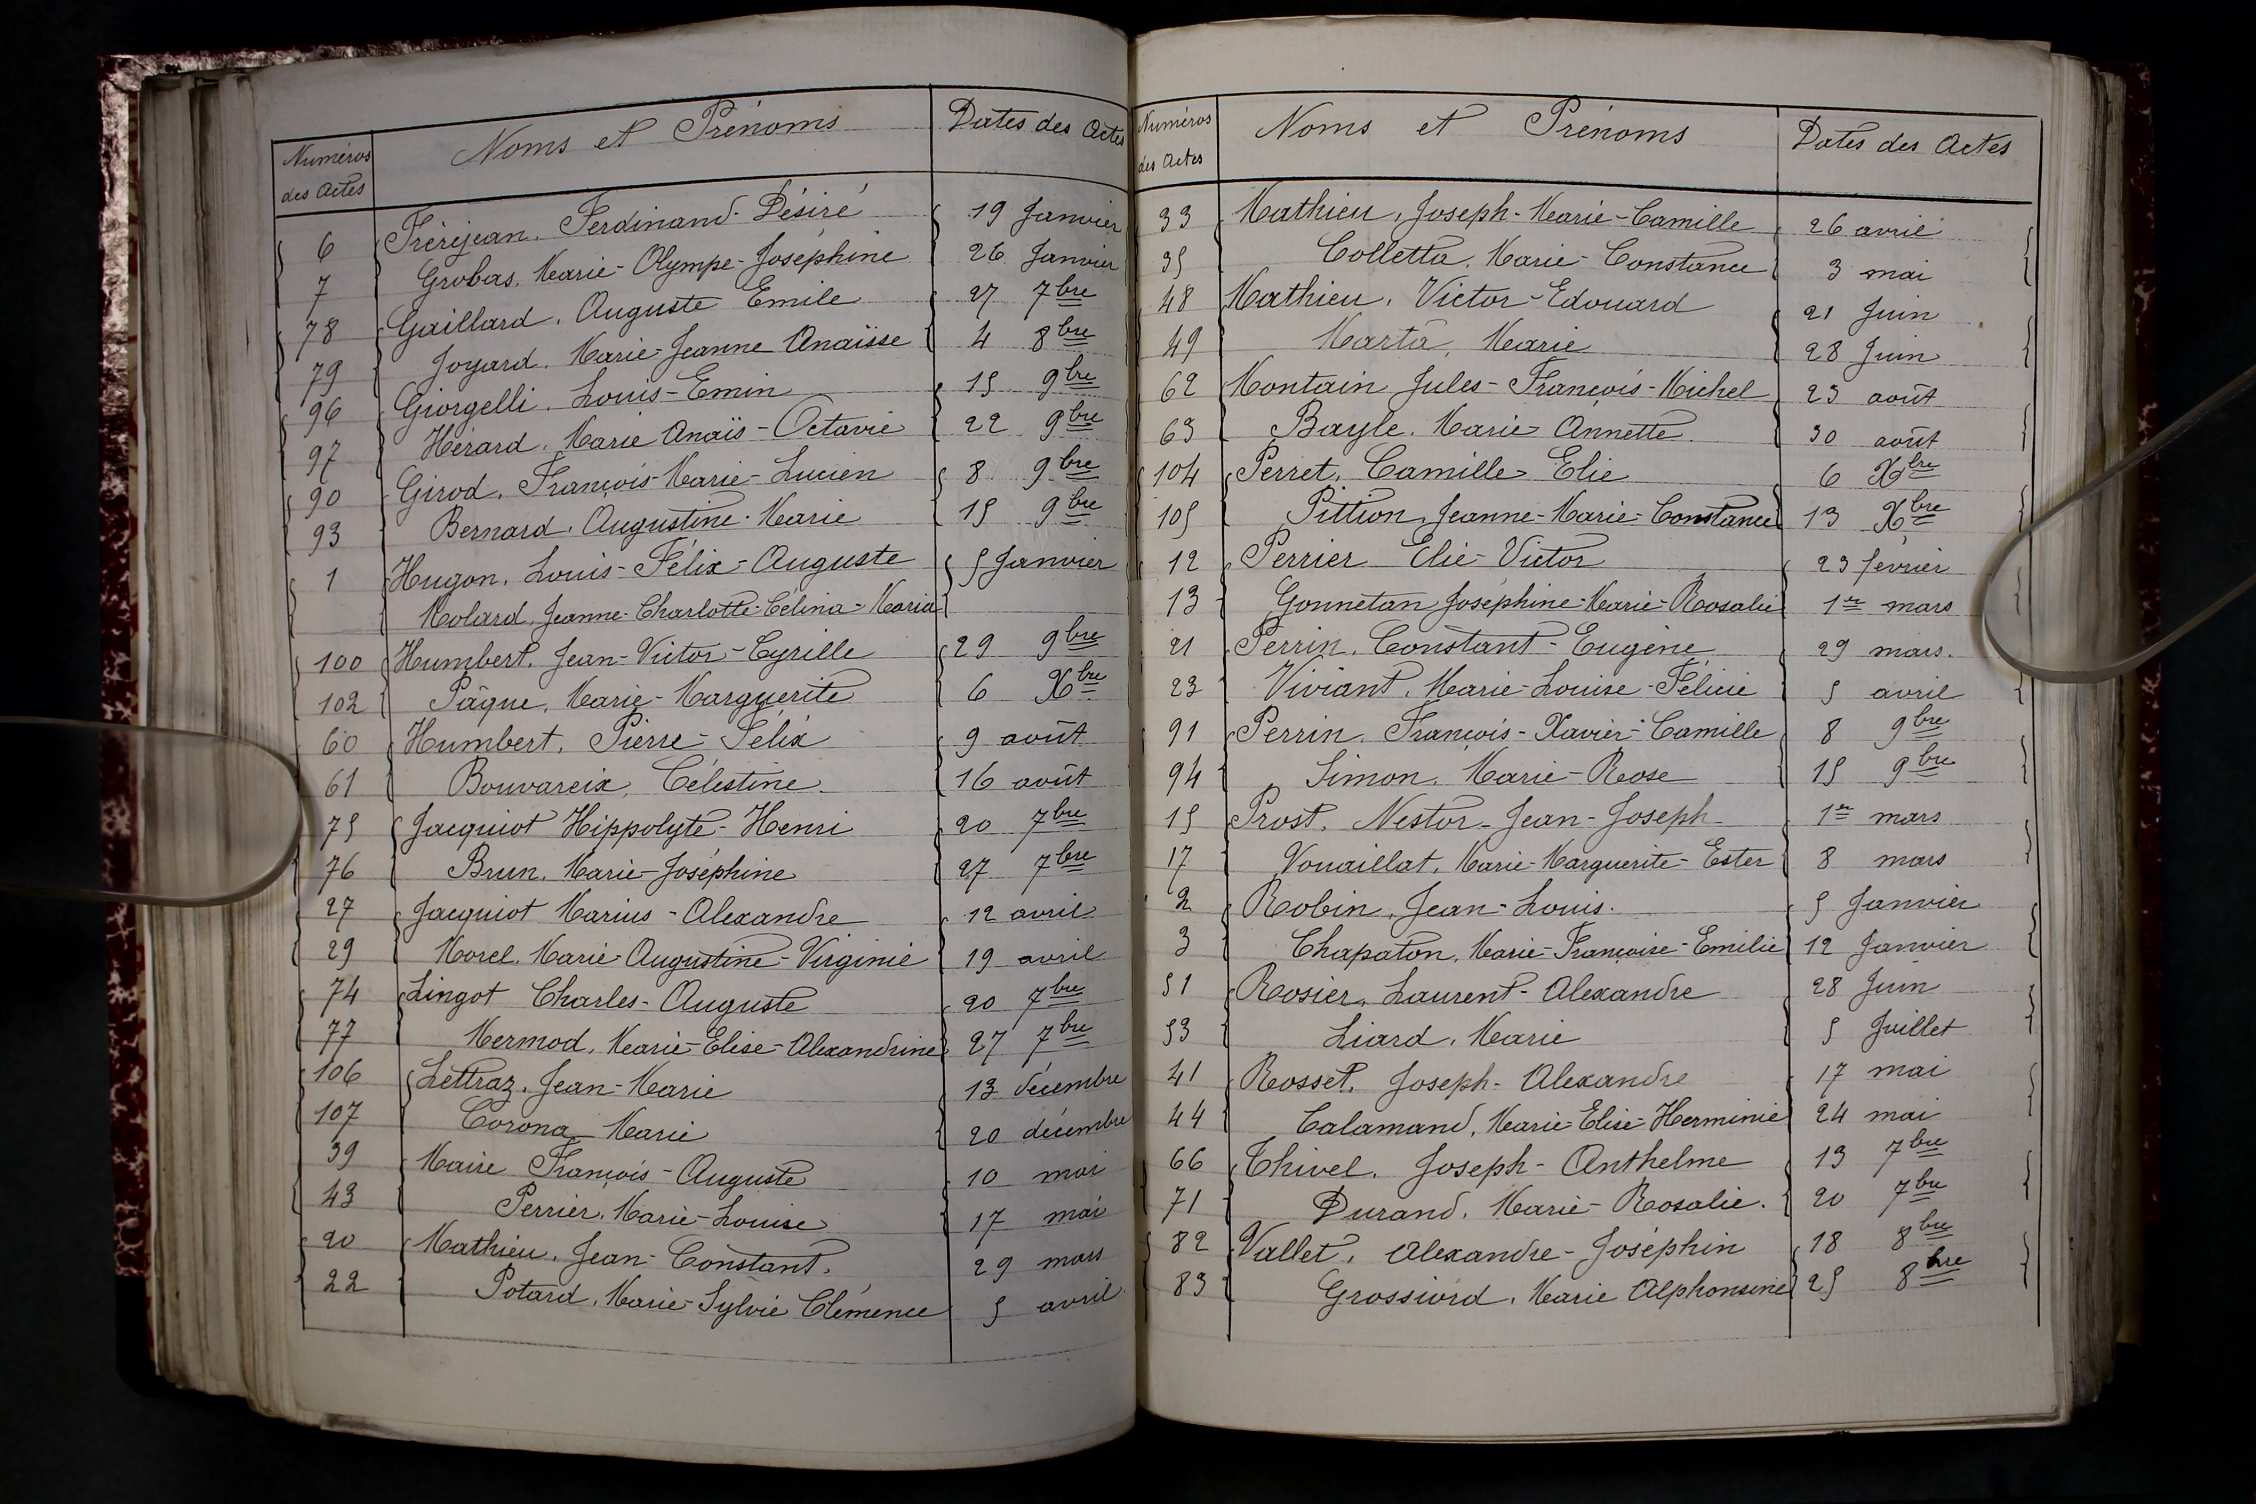 Numéros des Actes Noms et Prénoms Dates des Actes
6 Frérejean, Ferdinand-Désiré 19 Janvier
7 Grobas, Marie-Olympe-Joséphine 26 Janvier
78 Gaillard, Auguste Emile 27 7bre
79 Joyard, Marie-Jeanne Anaïsse 4 8bre
96 Giorgelli, Louis-Emin 15 9bre
97 Hérard, Marie Anaïs-Octavie 22 9bre
90 Girod, François-Marie-Lucien 8 9bre
93 Bernard, Augustine-Marie 15 9bre
1 Hugon, Louis-Félix-Auguste 5 Janvier
Molard, Jeanne-Charlotte-Célina-Maria
100 Humbert, Jean-Victor-Cyrille 29 9bre
102 Pâque, Marie-Marguerite 6 Xbre
60 Humbert, Pierre-Félix 9 août
61 Bouvareix, Célestine 16 août
75 Jacquiot Hippolyte-Henri 20 7bre
76 Brun, Marie-Joséphine 27 7bre
27 Jacquiot Marius-Alexandre 12 avril
29 Morel, Marie-Augustine-Virginie 19 avril
74 Lingot Charles-Auguste 20 7bre
77 Mermod, Marie-Elise-Alexandrine 27 7bre
106 Lettraz, Jean-Marie 13 décembre
107 Corona Marie 20 décembre
39 Maire François-Auguste 10 mai
43 Perrier, Marie-Louise 17 mai
20 Mathieu, Jean-Constant. 29 mars
22 Potard, Marie-Sylvie Clémence 5 avril
Numéros des Actes Noms et Prénoms Dates des Actes
33 Mathieu, Joseph-Marie-Camille 26 avril
35 Colletta, Marie-Constance 3 mai
48 Mathieu, Victor-Edouard 21 Juin
49 Marta, Marie 28 Juin
62 Montain Jules-François-Michel 23 août
63 Bayle, Marie Annette 30 août
104 Perret, Camille Elie 6 Xbre
105 Pittion, Jeanne-Marie-Constance 13 Xbre
12 Perrier Elie-Victor 23 février
13 Gonnetan Joséphine-Marie-Rosalie 1er mars
21 Perrin, Constant-Eugène 29 mars.
23 Viviant, Marie-Louise-Félicie 5 avril
91 Perrin, François-Xavier-Camille 8 9bre
94 Simon, Marie-Rose 15 9bre
15 Prost, Nestor-Jean-Joseph 1er mars
17 Vouaillat, Marie-Marguerite-Ester 8 mars
2 Robin, Jean-Louis. 5 Janvier
3 Chapaton, Marie-Françoise-Emilie 12 Janvier
51 Rosier, Laurent-Alexandre 28 Juin
53 Liard, Marie 5 Juillet
41 Rosset, Joseph-Alexandre 17 mai
44 Calamand, Marie-Elise-Herminie 24 mai
66 Thivel, Joseph-Anthelme 13 7bre
71 Durand, Marie-Rosalie. 20 7bre
82 Vallet, Alexandre-Joséphin 18 8bre
83 Grossiord, Marie Alphonsine 25 8bre